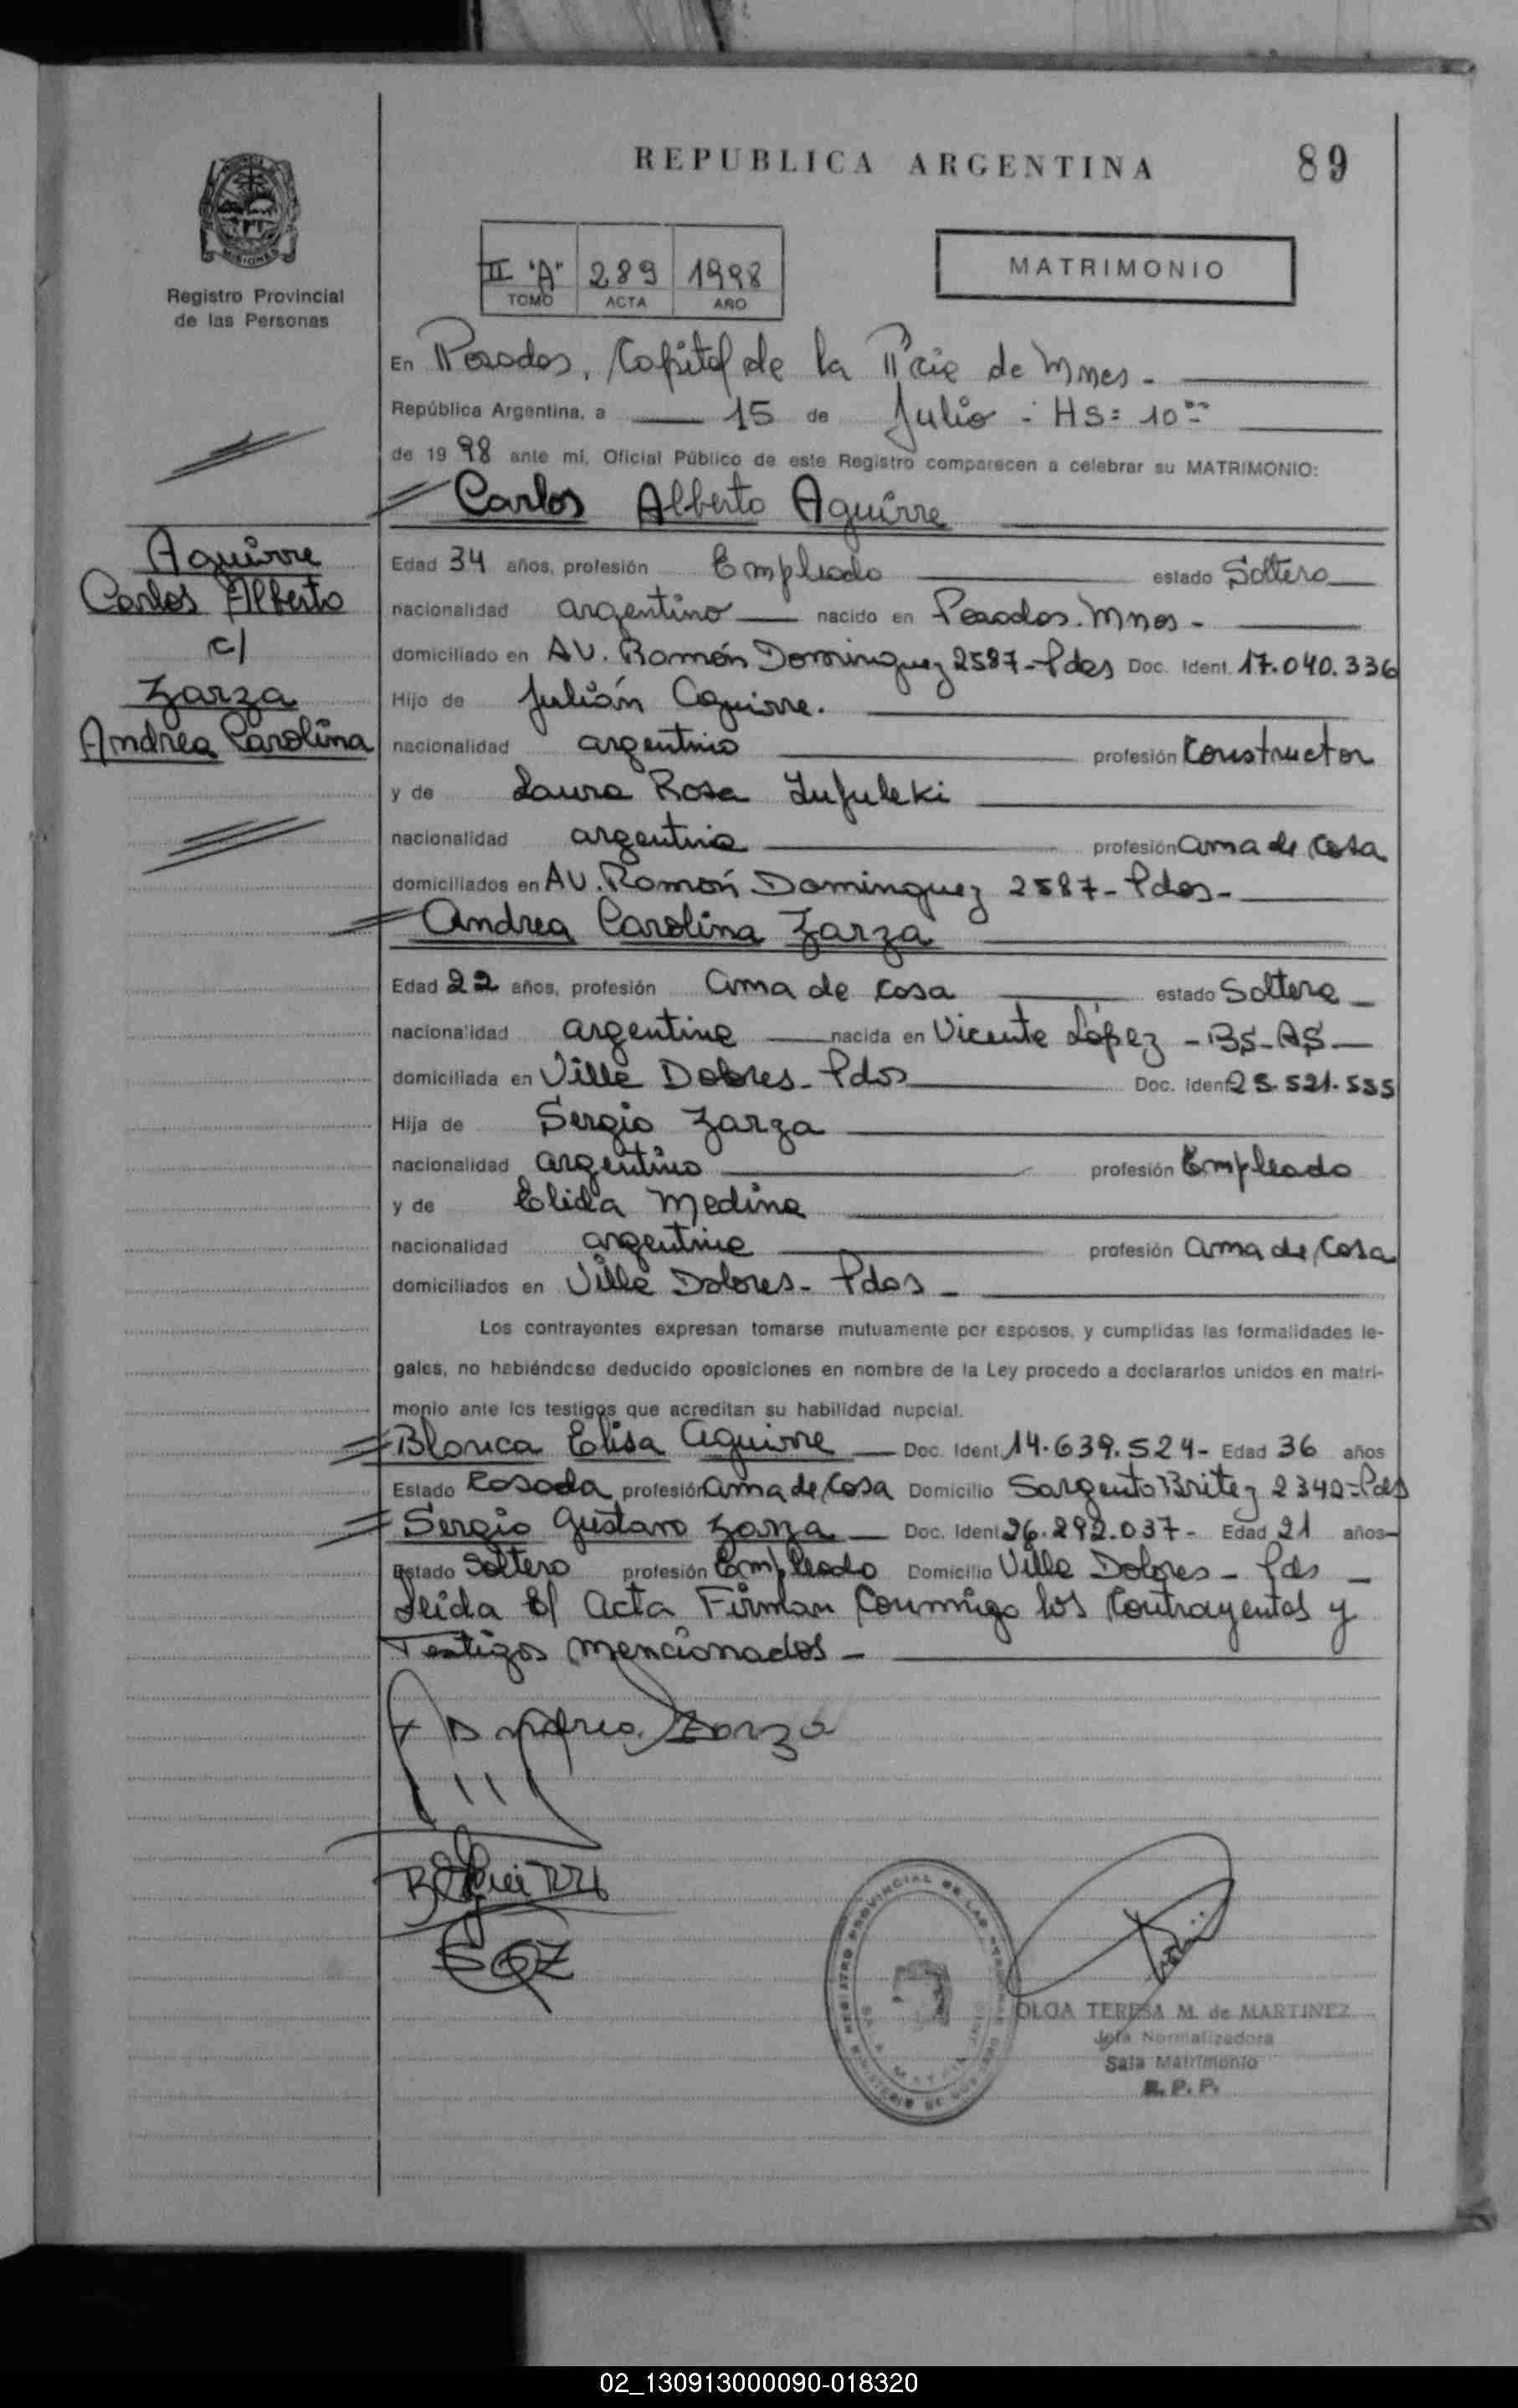 REPUBLICA ARGENTINA
89
MISIONES
Registro Provincial
de las Personas
II "A" 289 1998
TOMO ACTA AÑO
MATRIMONIO
En Posadas, Capital de la Pcie de Mnes -
República Argentina, a 15 de Julio - HS: 10
de 1998 ante mí, Oficial Público de este Registro comparecen a celebrar su MATRIMONIO:
Carlos Alberto Aguirre
Aguirre
Carlos Alberto
c/
Zarza
Andrea Carolina
Edad 34 años, profesión Empleado estado Soltero
nacionalidad argentino nacido en Posadas. Mnes -
domiciliado en AV. Ramón Dominguez 2587 - Pdas Doc. Ident. 17.040.336
Hijo de Julián Aguirre.
nacionalidad argentino profesión Constructor
y de Laura Rosa
nacionalidad argentina profesión ama de casa
domiciliados en AV. Ramón Dominguez 2587 - Pdas -
Andrea Carolina Zarza
Edad 22 años, profesión ama de casa estado Soltera
nacionalidad argentina nacida en Vicente López - BS - AS -
domiciliada en Villa Dolores - Pdas Doc. Ident. 25.521.555
Hija de Sergio Zarza
nacionalidad argentino profesión Empleado
y de Elida Medina
nacionalidad argentina profesión ama de casa
domiciliados en Villa Dolores - Pdas -
Los contrayentes expresan tomarse mutuamente por esposos, y cumplidas las formalidades le-
gales, no habiéndose deducido oposiciones en nombre de la Ley procedo a declararlos unidos en matri-
monio ante los testigos que acreditan su habilidad nupcial.
Blanca Elisa Aguirre Doc. Ident. 14.639.524 - Edad 36 años
Estado Casada profesión ama de casa Domicilio Sargento Britez 2342 - Pdas
Sergio Gustavo Zarza - Doc. Ident. 26.292.037 - Edad 21 años
Estado Soltero profesión Empleado Domicilio Villa Dolores - Pdas -
Leida el Acta Firman Conmigo los Contrayentes y
Testigos mencionados -
Andrea Zarza
SGZ
REGISTRO PROVINCIAL DE LAS PERSONAS
OLGA TERESA M. de MARTINEZ
Jefa Normalizadora
Sala Matrimonio
R. P. P.
02_130913000090-018320